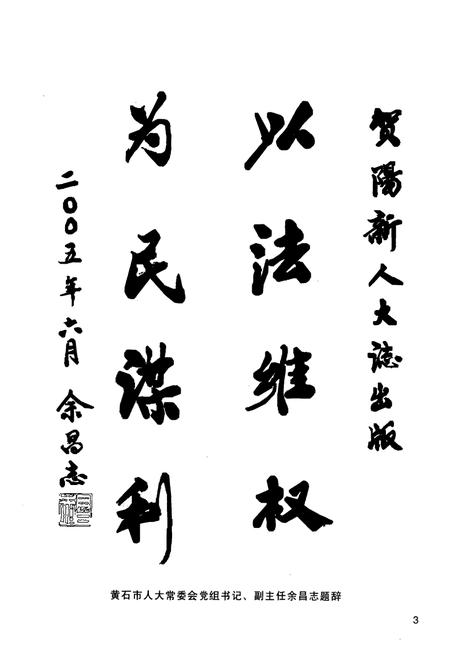 贺陽新人大誌出版
以法维权
为民谋利
二00五年六月 余昌志
黄石市人大常委会党组书记、副主任余昌志题辞
3